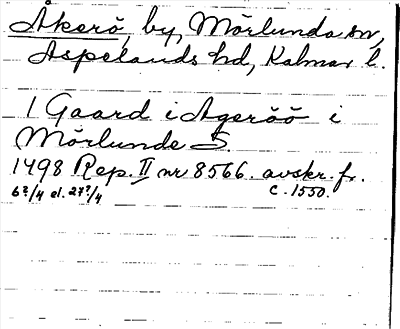 Åkerö, by, Mörlunda sn,
Aspelands hd, Kalmar l.
1 Gaard i Ageröö i
Mörlunde S.
1498 Rep. II nr 8566. avskr. fr.
6?/4 el. 27?/4 c. 1550.